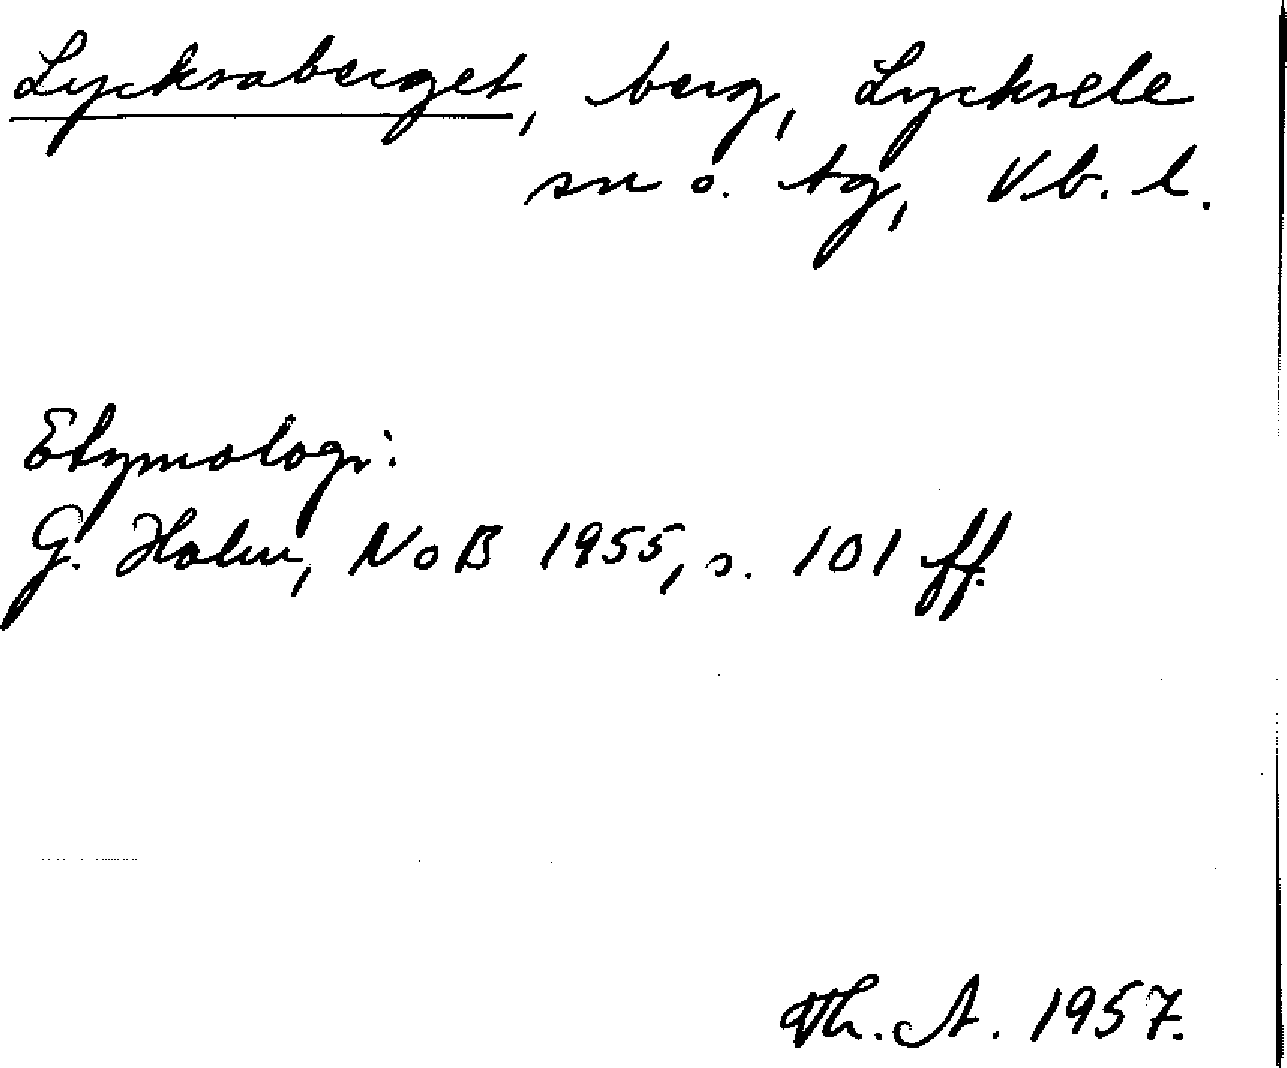 Lycksaberget, berg, Lycksele
sn o. tg, Vb. l.
Etymologi:
G. Holm, NoB 1955, s. 101 ff.
Th. A. 1957.